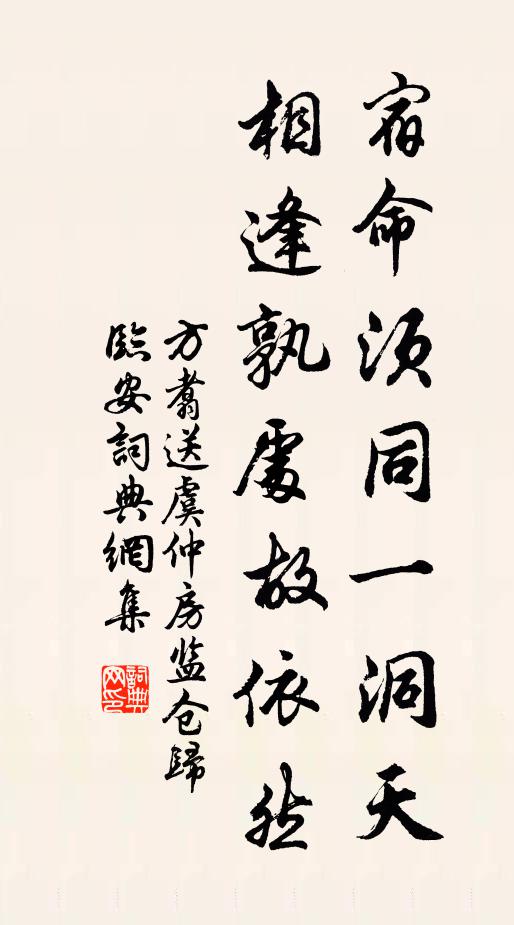 宿命须同一洞天
相逢孰處故依然
方翥送虞仲房监仓歸
臨安詞典網集
詞典
网印